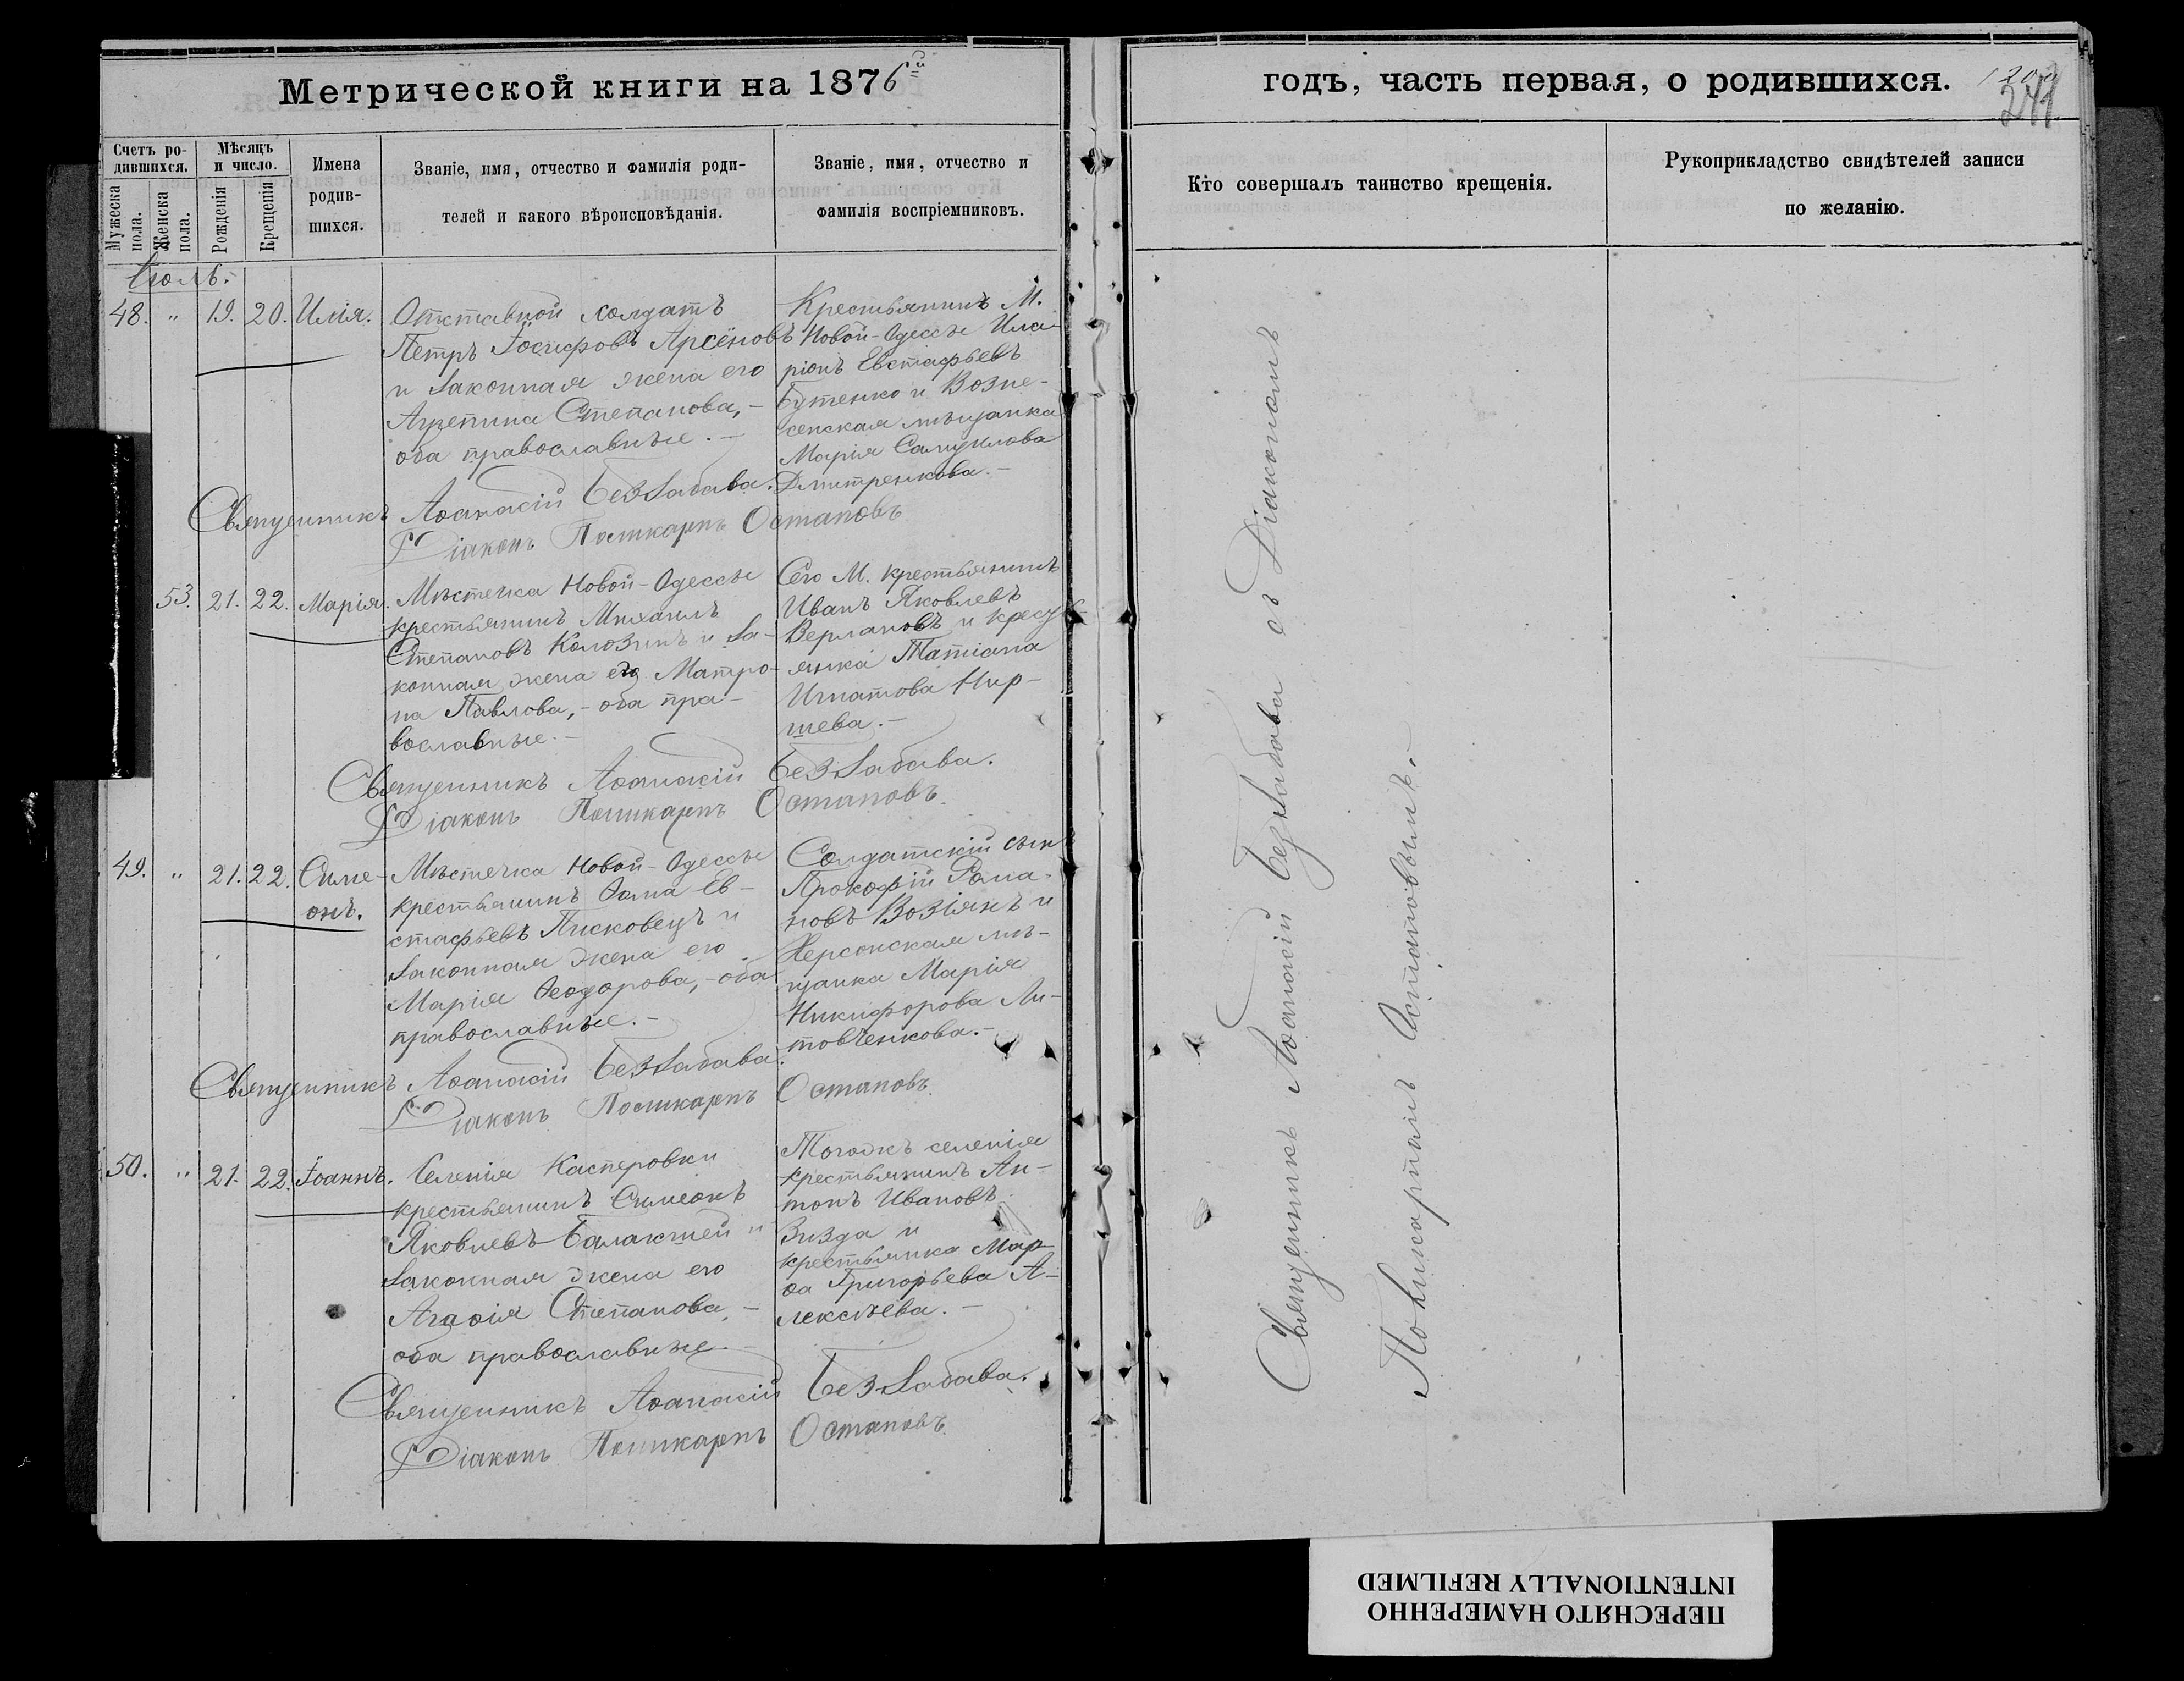 Метрической книги на 1876й
Счетъ ро-
дившихся.
Мужеска
пола.
Женска
пола.
Мѣсяцъ
и число.
Рожденія
Крещенія
Имена
родив-
шихся.
Званіе, имя, отчество и фамилія роди-
телей и какого вѣроисповѣданія.
Званіе, имя, отчество и
фамилія воспріемниковъ.
Іюль.
48. " 19. 20. Илія.
Отставной солдатъ
Петръ Іосифовъ Арсёновъ
и законная жена его
Агрепина Степанова, -
оба православные. -
Крестьянинъ М.
Новой-Одессы Ила-
ріонъ Евстафьевъ
Бутенко и Возне-
сенская мѣщанка
Марія Самуилова
Дмитренкова. -
Священникъ Аѳанасій Беззабава.
Діаконъ Поликарпъ Остаповъ
53. 21. 22. Марія.
Мѣстечка Новой-Одессы
крестьянинъ Михаилъ
Степановъ Колозинъ и за-
конная жена его Матро-
на Павлова, - оба пра-
вославные. -
Сего М. крестьянинъ
Иванъ Яковлевъ
Верлановъ и крест
янка Татіана
Игнатова Нир-
шева. -
Священникъ Аѳанасій Беззабава.
Діаконъ Поликарпъ Остаповъ.
49. " 21. 22. Симе-
онъ.
Мѣстечка Новой-Одессы
крестьянинъ Ѳома Ев-
стафьевъ Писковецъ и
законная жена его
Марія Ѳеодорова, - оба
православные. -
Солдатскій сын
Прокофій Рома-
новъ Возіянъ и
Херсонская мѣ-
щанка Марія
Никифорова Ли-
товченкова. -
Священникъ Аѳанасій Беззабава.
Діаконъ Поликарпъ Остаповъ.
50. " 21. 22. Іоаннъ.
Селенія Касперовки
крестьянинъ Симеонъ
Яковлевъ Балакшей и
законная жена его
Агаѳія Степанова, -
оба православные. -
Тогожъ селенія
крестьянинъ Ан-
тонъ Ивановъ
Визда и
крестьянка Мар-
ѳа Григорьева А-
лексѣева. -
Священникъ Аѳанасій Беззабава.
Діаконъ Поликарпъ Остаповъ.
годъ, часть первая, о родившихся.
Кто совершалъ таинство крещенія.
Рукоприкладство свидѣтелей записи
по желанію.
Священникъ Аѳанасій Беззабава съ Діакономъ
Поликарпомъ Остаповымъ. -
ПЕРЕСНЯТО НАМЕРЕННО
INTENTIONALLY REFILMED